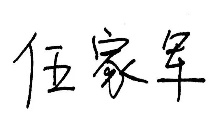 伍家军